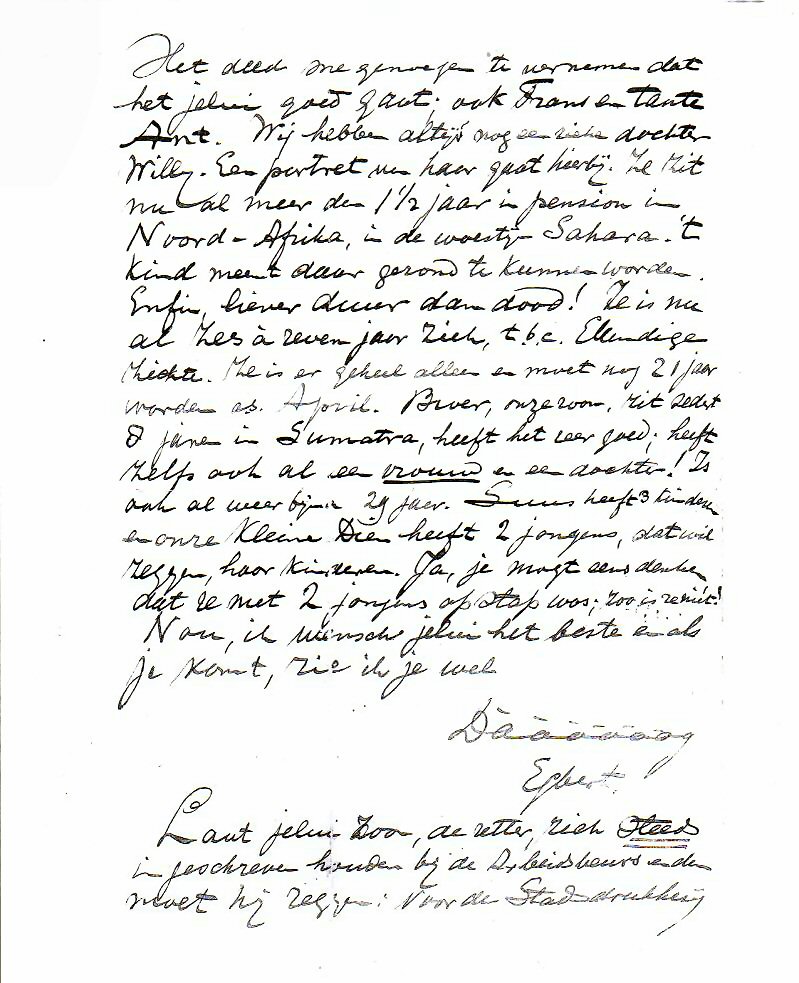 Het deed me genoegen te vernemen dat
het jelui goed gaat; ook Frans en tante
Ant. Wij hebben altijd nog een zieke dochter
Willy. Een portret van haar gaat hierbij. Ze zit
nu al meer dan 1 1/2 jaar in pension in
Noord-Afrika, in de woestijn Sahara. 't
kind meent daar gezond te kunnen worden.
Enfin, liever duur dan dood! Ze is nu
al zes à zeven jaar ziek, t.b.c. Ellendige
ziekte. Ze is er geheel alleen en moet nog 21 jaar
worden as. April. Broer, onze zoon, zit sedert
8 jaren in Sumatra, heeft het zeer goed; heeft
zelfs ook al een vrouw en een dochter! Is
ook al weer bijna 29 jaar. Suus heeft 3 kinderen
en onze kleine Dien heeft 2 jongens, dat wil
zeggen, haar kinderen. Ja, je mogt eens denken
dat ze met 2 jongens op stap was; zoo is ze niet!
Nou, ik wensch jelui het beste en als
je komt, zie ik je wel
Dàààààg
Egbert
Laat jelui zoon, de zetter, zich steeds
ingeschreven houden bij de Arbeidsbeurs en dan
moet hij zeggen: voor de Stadsdrukkerij